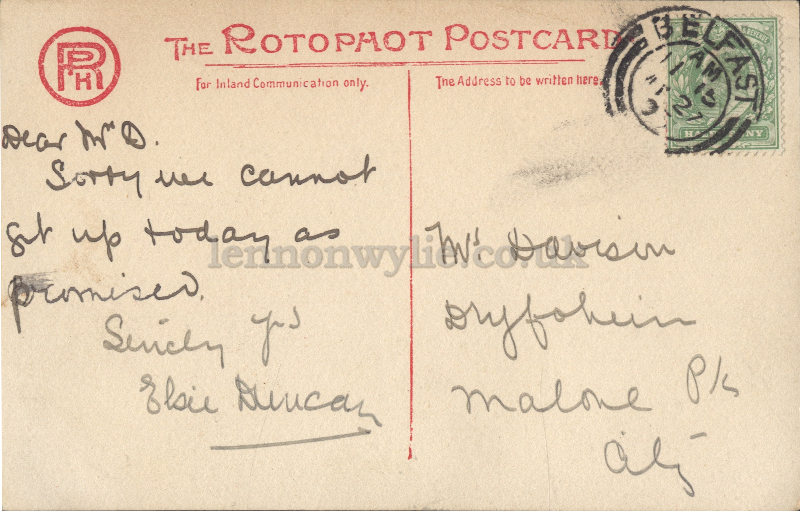 RPH
THE ROTOPHOT POSTCARD
For Inland Communication only.
The Address to be written here.
BELFAST
11 15 AM
27
HALFPENNY
Dear Mrs D.
Sorry we cannot
get up today as
promised.
Sincly yrs
Elsie Duncan
Mrs Davison
Malone Pk
City
lennonwylie.co.uk